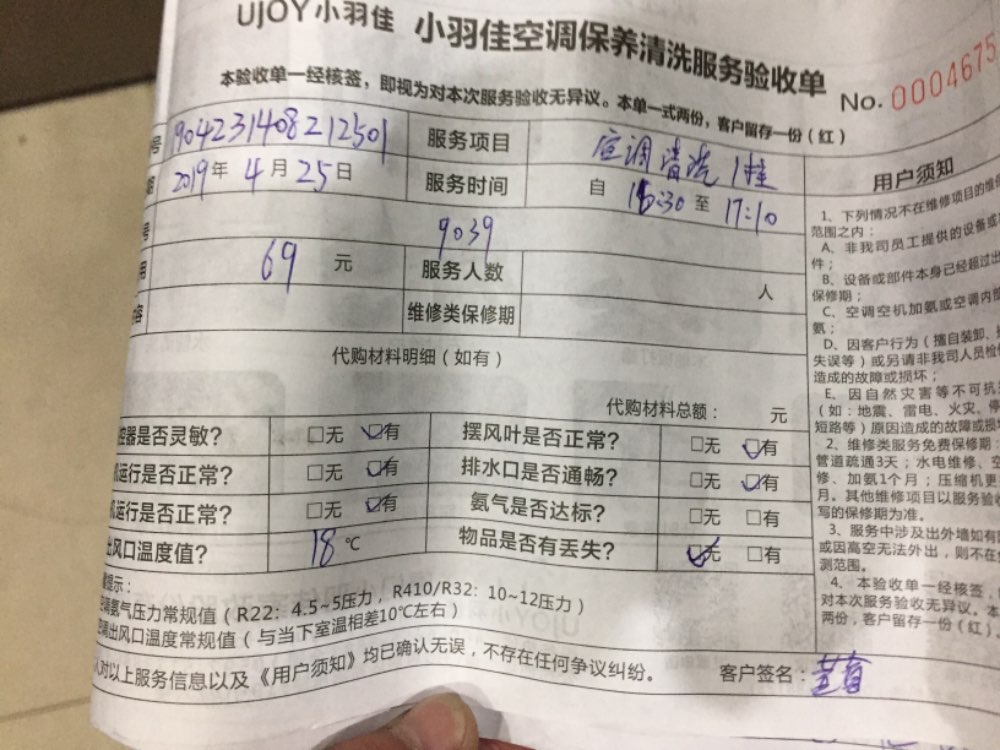 UJOY小羽佳 小羽佳空调保养清洗服务验收单
No. 0004675
本验收单一经核签，即视为对本次服务验收无异议。本单一式两份，客户留存一份（红）
号 1904231408212501 服务项目 空调清洗1挂
2019年4月25日 服务时间 自 16:30 至 17:10
号 9039
用 69 元 服务人数 人
容 维修类保修期
代购材料明细（如有）
代购材料总额： 元
控器是否灵敏？ □无 ☑有 摆风叶是否正常？ □无 ☑有
机运行是否正常？ □无 ☑有 排水口是否通畅？ □无 ☑有
机运行是否正常？ □无 ☑有 氨气是否达标？ □无 □有
出风口温度值？ 18 ℃ 物品是否有丢失？ ☑无 □有
提示：
空调氨气压力常规值（R22：4.5~5压力，R410/R32：10~12压力）
空调出风口温度常规值（与当下室温相差10℃左右）
人对以上服务信息以及《用户须知》均已确认无误，不存在任何争议纠纷。 客户签名：
用户须知
1、下列情况不在维修项目的维保
范围之内：
A、非我司员工提供的设备或
件；
B、设备或部件本身已经超过出
保修期；
C、空调空机加氨或空调内部
氨；
D、因客户行为（擅自装卸、
失误等）或另请非我司人员检
造成的故障或损坏；
E、因自然灾害等不可抗
（如：地震、雷电、火灾、
短路等）原因造成的故障或损
2、维修类服务免费保修期
管道疏通3天；水电维修、空
修、加氨1个月；压缩机更
月。其他维修项目以服务验
写的保修期为准。
3、服务中涉及出外墙如有
或因高空无法外出，则不在
测范围。
4、本验收单一经核签，
对本次服务验收无异议。本
两份，客户留存一份（红）